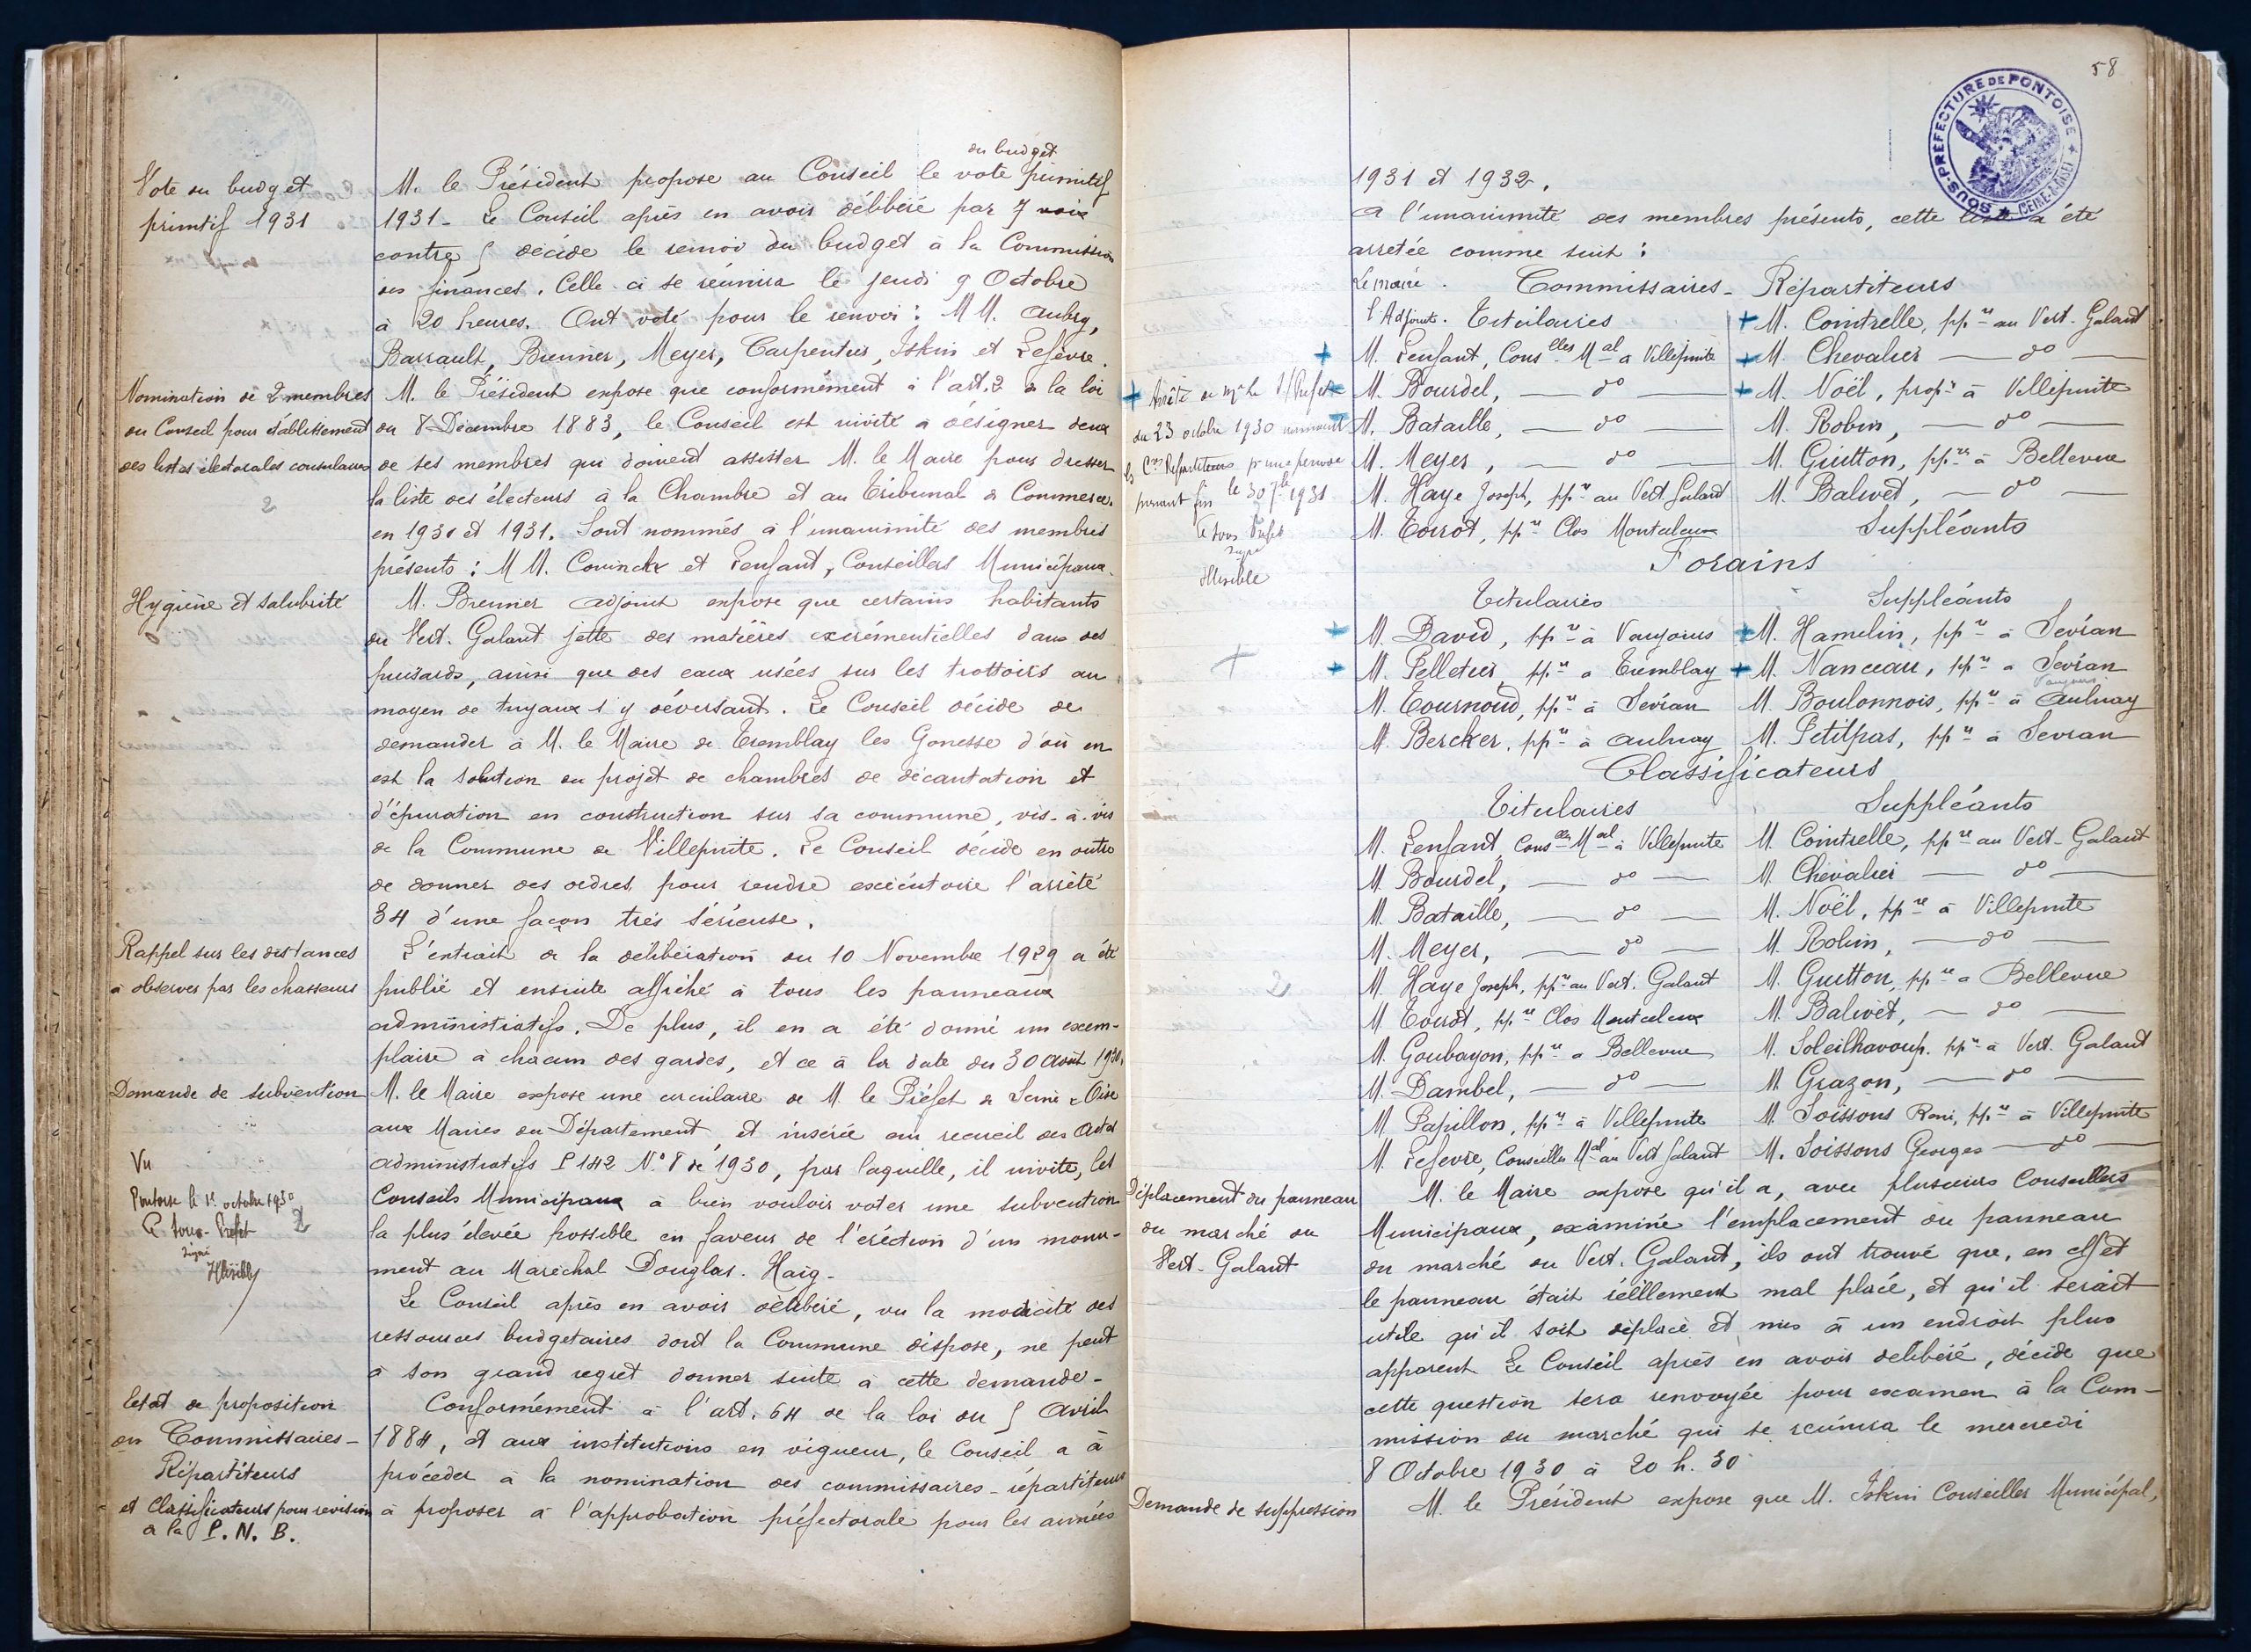 Vote du budget
primitif 1931
du budget
M. le Président propose au Conseil le vote primitif
1931 - Le Conseil après en avoir délibéré par 7 voix
contre 5 décide le renvoi du budget à la Commission
des finances. Celle ci se réunira le jeudi 9 Octobre
à 20 heures. Ont voté pour le renvoi : MM. Aubry,
Barrault, Brenner, Meyer, Carpentier, Iskin et Lefèvre.
Nomination de 2 membres
du Conseil pour établissement
des listes électorales consulaires
2
M. le Président expose que conformément à l'art. 2 de la loi
du 8 Décembre 1883, le Conseil est invité à désigner deux
de ses membres qui doivent assister M. le Maire pour dresser
la liste des électeurs à la Chambre et au Tribunal de Commerce.
en 1930 et 1931. Sont nommés à l'unanimité des membres
présents : MM. Couinckx et Lenfant, Conseillers Municipaux.
Hygiène et salubrité
M. Brenner adjoint expose que certains habitants
du Vert. Galant jette des matières excrémentielles dans des
puisards, ainsi que des eaux usées sur les trottoirs au
moyen de tuyaux s'y déversant. Le Conseil décide de
demander à M. le Maire de Tremblay les Gonesse d'où en
est la solution du projet de chambres de décantation et
d'épuration en construction sur sa commune, vis-à-vis
de la Commune de Villepinte. Le Conseil décide en outre
de donner des ordres pour rendre exécutoire l'arrêté
34 d'une façon très sérieuse.
Rappel sur les distances
à observer par les chasseurs
L'extrait de la délibération du 10 Novembre 1929 a été
publié et ensuite affiché à tous les panneaux
administratifs. De plus, il en a été donné un exem-
plaire à chacun des gardes, et ce à la date du 30 Août 1930.
Demande de subvention
M. le Maire expose une circulaire de M. le Préfet de Seine & Oise
aux Maires du Département, et insérée au recueil des Actes
administratifs P 142 N° 8 de 1930, par laquelle, il invite, les
Conseils Municipaux à bien vouloir voter une subvention
la plus élevée possible en faveur de l'érection d'un monu-
ment au Maréchal Douglas. Haig -
Vu
Pontoise le 1er octobre 1930
Le Sous-Préfet
signé
Illisible
2
Le Conseil après en avoir délibéré, vu la modicité des
ressources budgetaires dont la Commune dispose, ne peut
à son grand regret donner suite à cette demande -
Etat de proposition
des Commissaires -
Répartiteurs
et Classificateurs pour revision
à la P. N. B.
Conformément à l'art. 64 de la loi du 5 Avril
1884, et aux institutions en vigueur, le Conseil a à
procéder à la nomination des commissaires - répartiteurs
à proposer à l'approbation préfectorale pour les années
58
SOUS-PRÉFECTURE DE PONTOISE
(SEINE-&-OISE)
1931 et 1932.
A l'unanimité des membres présents, cette liste a été
arretée comme suit :
Le maire. Commissaires - Répartiteurs
l'Adjoint. Titulaires
+ M. Cointrelle, ppre au Vert - Galant
+ M. Lenfant, Conseller Mal à Villepinte + M. Chevalier — do —
M. Bourdel, — do — + M. Noël, propre à Villepinte
M. Bataille, — do — M. Robin, — do —
M. Meyer, — do — M. Guitton, ppre à Bellevue
M. Haye Joseph, ppre au Vert Galant M. Balivet, — do —
M. Toirot, ppre Clos Montceleux Suppléants
+ Arrêté de Mr le S/Préfet
du 23 octobre 1930 nommant
les Cres Répartiteurs pr une période
prenant fin le 30 7bre 1931
Le Sous Préfet
signé
Illisible
Forains
Titulaires Suppléants
+ M. David, ppre à Vaujours + M. Hamelin, ppre à Sevran
+ M. Pelletier, ppre à Tremblay + M. Nanceau, ppre à Sevran
Vaujours
M. Tournoud, ppre à Sévran M. Boulonnois, ppre à Aulnay
M. Bercker, ppre à Aulnay M. Petitpas, ppre à Sevran
Classificateurs
Titulaires Suppléants
M. Lenfant, Conseller Mal à Villepinte M. Cointrelle, ppre au Vert - Galant
M. Bourdel, — do — M. Chevalier — do —
M. Bataille, — do — M. Noël, ppre à Villepinte
M. Meyer, — do — M. Robin, — do —
M. Haye Joseph, ppre au Vert. Galant M. Guitton, ppre à Bellevue
M. Toirot, ppre Clos Montceleux M. Balivet, — do —
M. Goubayon, ppre à Bellevue M. Soleilhavoup. ppre à Vert. Galant
M. Dambel, — do — M. Grazon, — do —
M. Papillon, ppre à Villepinte M. Soissons René, ppre à Villepinte
M. Lefevre, Conseiller Mal au Vert Galant M. Soissons Georges — do —
Déplacement du panneau
du marché du
Vert - Galant
M. le Maire expose qu'il a, avec plusieurs Conseillers
Municipaux, examiné l'emplacement du panneau
du marché du Vert. Galant, ils ont trouvé que, en effet
le panneau était réellement mal placé, et qu'il serait
utile qu'il soit déplacé et mis à un endroit plus
apparent Le Conseil après en avoir délibéré, décide que
cette question sera renvoyée pour examen à la Com-
mission du marché qui se reúnira le mercredi
8 Octobre 1930 à 20 h. 30
Demande de suppression
M. le Président expose que M. Iskin Conseiller Municipal,